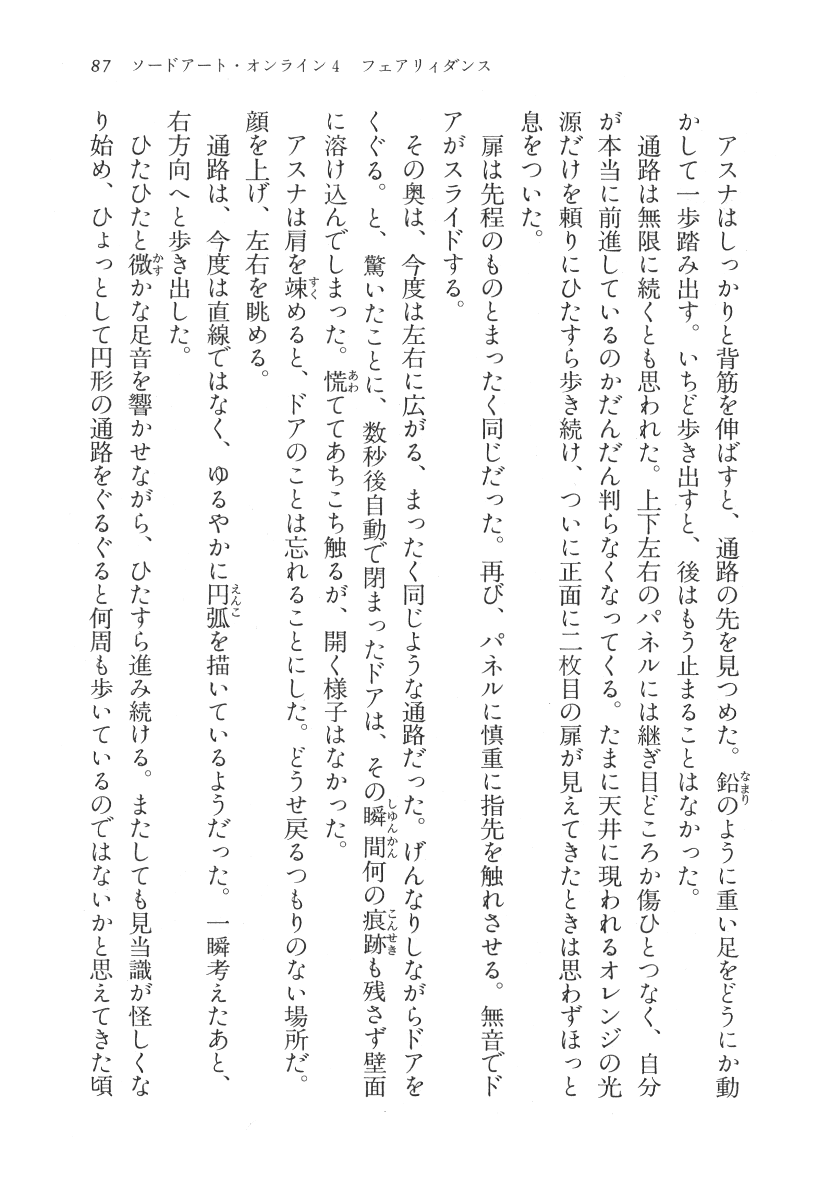 87 ソードアート・オンライン4 フェアリィダンス
　アスナはしっかりと背筋を伸ばすと、通路の先を見つめた。鉛のように重い足をどうにか動
かして一歩踏み出す。いちど歩き出すと、後はもう止まることはなかった。
　通路は無限に続くとも思われた。上下左右のパネルには継ぎ目どころか傷ひとつなく、自分
が本当に前進しているのかだんだん判らなくなってくる。たまに天井に現われるオレンジの光
源だけを頼りにひたすら歩き続け、ついに正面に二枚目の扉が見えてきたときは思わずほっと
息をついた。
　扉は先程のものとまったく同じだった。再び、パネルに慎重に指先を触れさせる。無音でド
アがスライドする。
　その奥は、今度は左右に広がる、まったく同じような通路だった。げんなりしながらドアを
くぐる。と、驚いたことに、数秒後自動で閉まったドアは、その瞬間何の痕跡も残さず壁面
に溶け込んでしまった。慌ててあちこち触るが、開く様子はなかった。
　アスナは肩を竦めると、ドアのことは忘れることにした。どうせ戻るつもりのない場所だ。
顔を上げ、左右を眺める。
　通路は、今度は直線ではなく、ゆるやかに円弧を描いているようだった。一瞬考えたあと、
右方向へと歩き出した。
　ひたひたと微かな足音を響かせながら、ひたすら進み続ける。またしても見当識が怪しくな
り始め、ひょっとして円形の通路をぐるぐると何周も歩いているのではないかと思えてきた頃